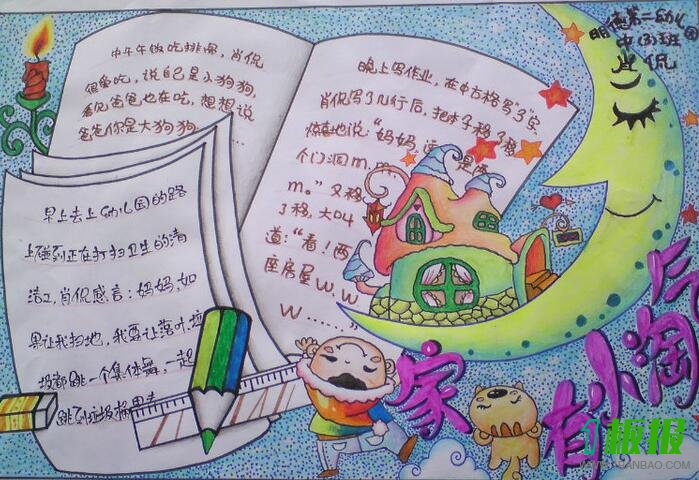 明德第二幼儿园
中(3)班
肖侃
中午午做吃排骨，肖侃
很爱吃，说自己是小狗狗，
看见爸爸也在吃，想想说
爸爸你是大狗狗……
晚上写作业，在田古格写了3
肖侃写了几行后，把本子移了移
惊喜地说："妈妈，这 是 两
个门洞m.m.
m。"又移
了移，大叫
道："看！两
座房屋W.W
W……"
早上去上幼儿园的路
上碰到正在打扫卫生的清
洁工，肖侃感言：妈妈，如
果让我扫地，我要让落叶垃
圾都跳一个集体舞，一起
跳到垃圾桶里去
家有小淘
板报
WWW.1BANBAO.COM